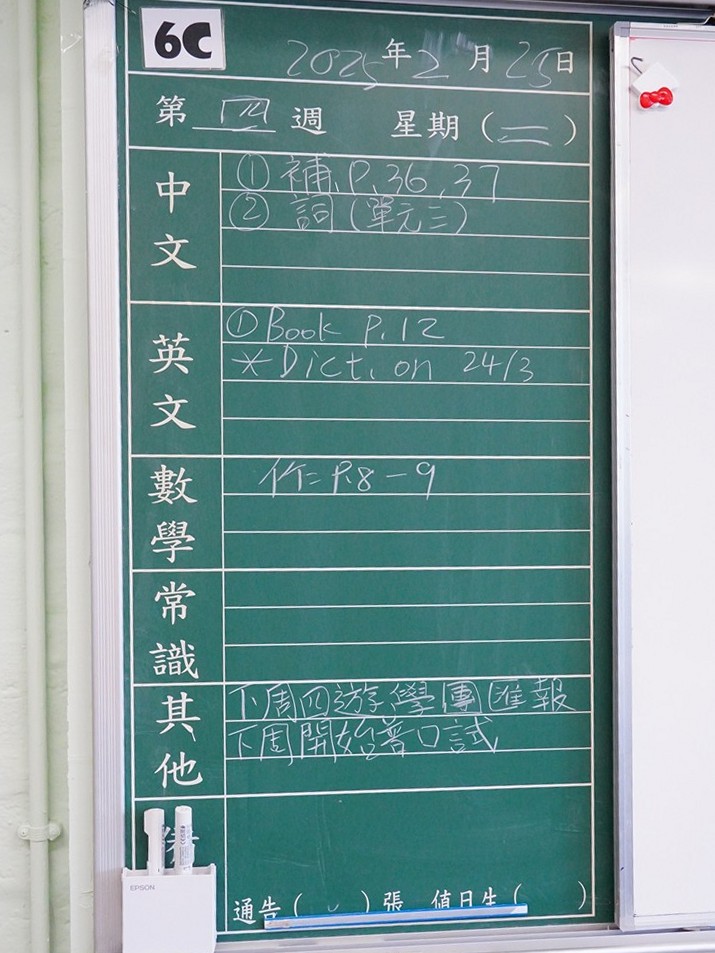 6C
2025年2月25日
第四週 星期(二)
中文
① 補.P.36,37
② 詞(單元三)
英文
① Book P.12
* Dict.on 24/3
數學
作= P.8-9
常識
其他
下周四遊學團匯報
下周開始普口試
EPSON
通告( )張 值日生( )